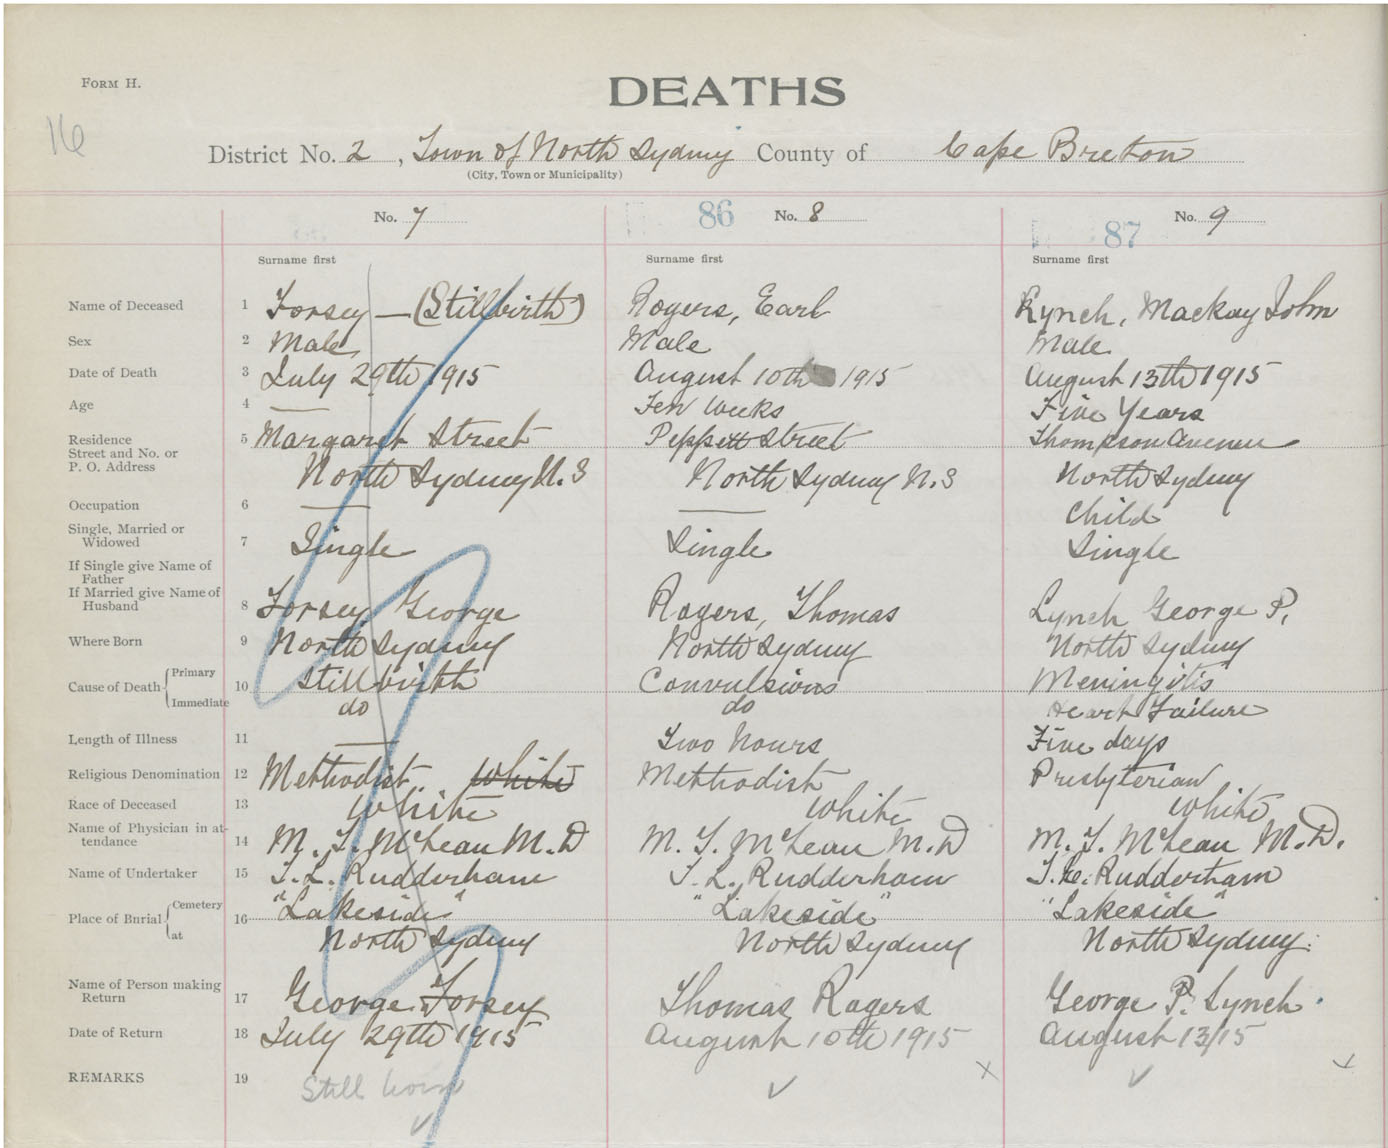 FORM H.
DEATHS
16
District No. 2, Town of North Sydney County of Cape Breton
(City, Town or Municipality)
No. 7
86 No. 8
87 No. 9
Surname first Surname first Surname first
Name of Deceased 1 Forsey — (Stillbirth) Rogers, Earl Lynch, Mackay John
Sex 2 Male Male Male
Date of Death 3 July 29th 1915 August 10th 1915 August 13th 1915
Age 4 — Ten Weeks Five Years
Residence 5 Margaret Street Peppett Street Thompson Avenue
Street and No. or
P. O. Address North Sydney N. S North Sydney N. S North Sydney
Occupation 6 — — Child
Single, Married or
Widowed 7 Single Single Single
If Single give Name of
Father
If Married give Name of
Husband 8 Forsey, George Rogers, Thomas Lynch George P.
Where Born 9 North Sydney North Sydney North Sydney
Cause of Death { Primary 10 Stillbirth Convulsions Meningitis
Immediate do do Heart Failure
Length of Illness 11 — Two Hours Five days
Religious Denomination 12 Methodist. white Methodist Presbyterian
Race of Deceased 13 White White White
Name of Physician in at-
tendance 14 M. T. McLean M.D M. T. McLean M.D M. T. McLean M.D.
Name of Undertaker 15 T. L. Rudderham T. L. Rudderham T. L. Rudderham
Place of Burial { Cemetery 16 "Lakeside" "Lakeside" "Lakeside"
at North Sydney North Sydney North Sydney.
Name of Person making
Return 17 George Forsey Thomas Rogers George P. Lynch
Date of Return 18 July 29th 1915 August 10th 1915 August 13/15
REMARKS 19 Still born